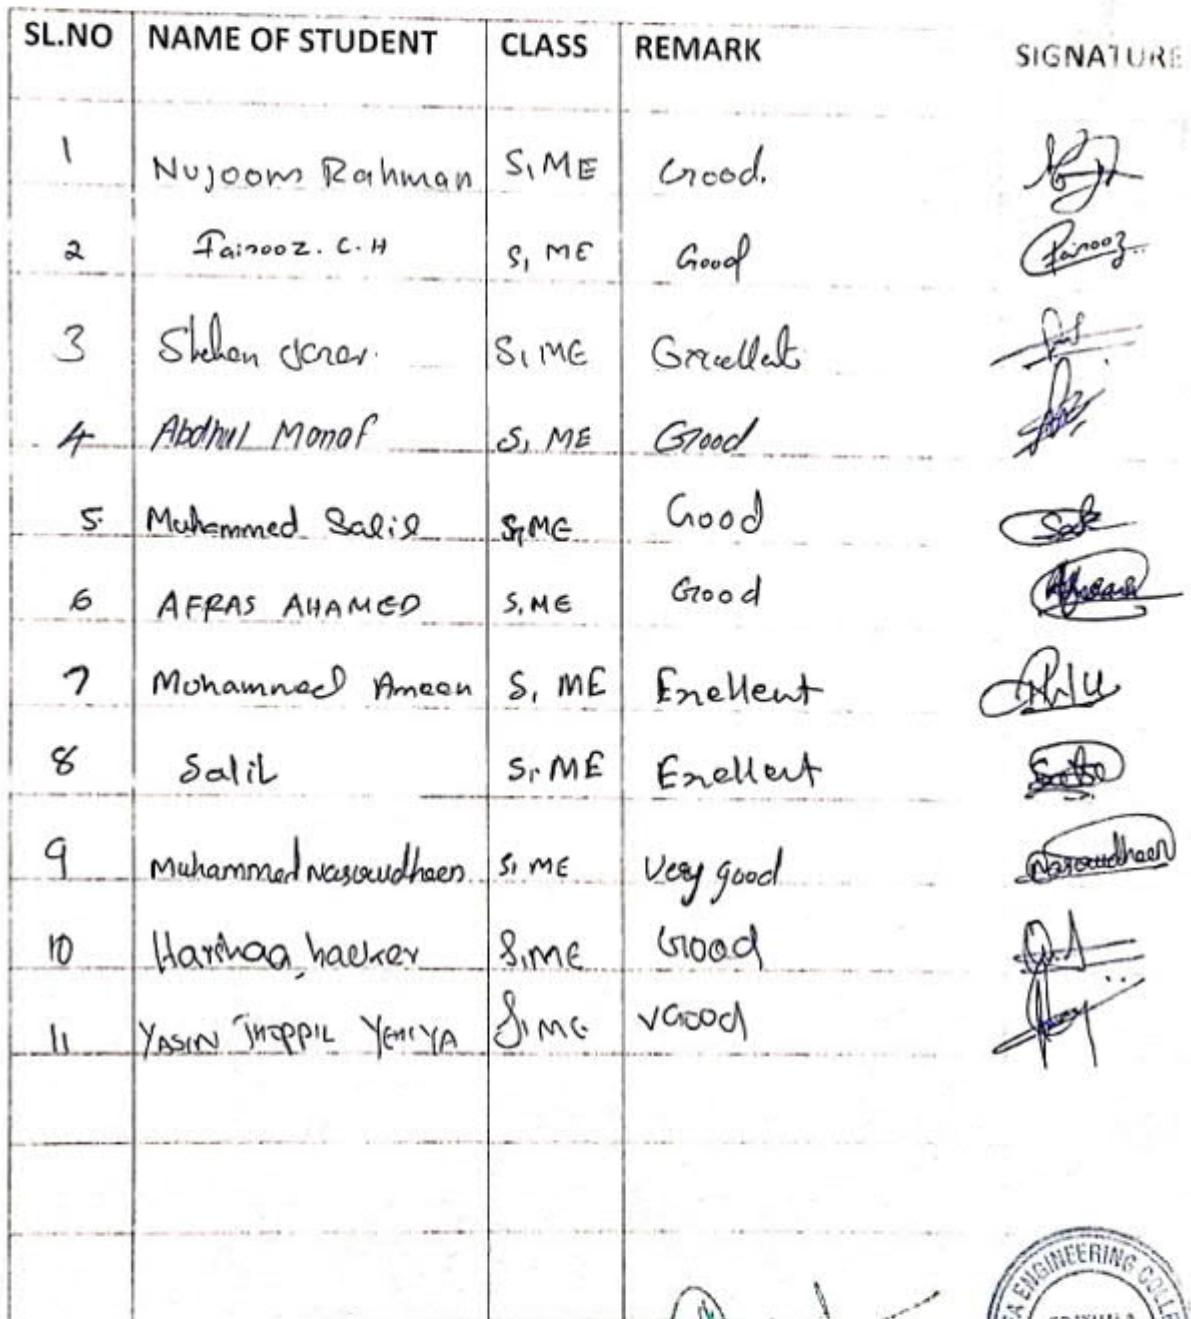 SL.NO NAME OF STUDENT CLASS REMARK SIGNATURE
1 Nujoom Rahman S1 ME Good.
2 Fairooz. C. H S1 ME Good Fairooz
3 Shehan S1 ME
4 Abdhul Manaf S1 ME Good
5 Muhammed Salil S1 ME Good
6 AFRAS AHAMED S1 ME Good
7 Mohammed Ameen S1 ME Exellent
8 Salil S1 ME Exellent
9 Muhammed Nasarudheen S1 ME Very good Nasarudheen
10 S1 ME Good
11 YASIN THOPPIL YEHIYA S1 ME VGood
ENGINEERING